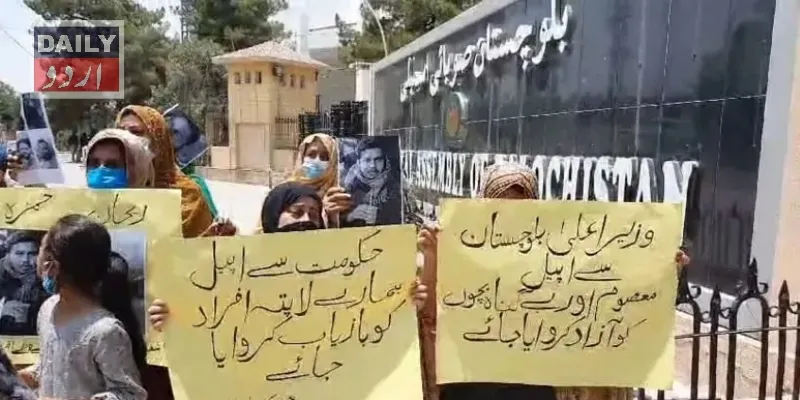 DAILY
اردو
بلوچستان صوبائی اسمبلی
ASSEMBLY OF BALOCHISTAN
حکومت سے اپیل
ہمارے لاپتہ افراد
کو بازیاب کروایا
جائے
وزیر اعلیٰ بلوچستان
سے اپیل
معصوم اور بے گناہ بچوں
کو آزاد کروایا جائے